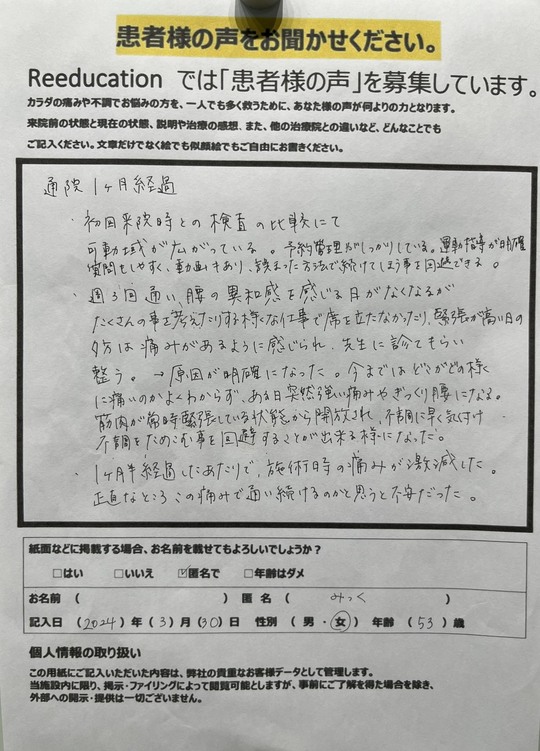 患者様の声をお聞かせください。
Reeducation では「患者様の声」を募集しています。
カラダの痛みや不調でお悩みの方を、一人でも多く救うために、あなた様の声が何よりの力となります。
来院前の状態と現在の状態、説明や治療の感想、また、他の治療院との違いなど、どんなことでも
ご記入ください。文章だけでなく絵でも似顔絵でもご自由にお書きください。
通院1ヶ月経過
・初回来院時との検査の比較にて
可動域が広がっている。予約管理がしっかりしている。運動指導が明確
質問もしやすく、動画もあり、誤まった方法で続けてしまう事を回避できる。
・週3回通い、腰の異和感を感じる日がなくなるが
たくさんの事を考えたりする様な仕事で席を立たなかったり、緊張が高い日の
夕方は痛みがあるように感じられ、先生に診てもらい
整う。→原因が明確になった。今まではどこがどの様
に痛いのかよくわからず、ある日突然強い痛みやぎっくり腰になる。
筋肉が常時緊張している状態から開放され、不調に早く気付け
不調をためこむ事を回避することが出来る様になった。
・1ヶ月半経過したあたりで、施術時の痛みが激減した。
正直なところこの痛みで通い続けるのかと思うと不安だった。
紙面などに掲載する場合、お名前を載せてもよろしいでしょうか？
□はい □いいえ ☑匿名で □年齢はダメ
お名前 ( ) 匿名 ( みっく )
記入日 (2024) 年 (3) 月 (30) 日 性別 (男・女) 年齢 (53) 歳
個人情報の取り扱い
この用紙にご記入いただいた内容は、弊社の貴重なお客様データとして管理します。
当施設内に限り、掲示・ファイリングによって閲覧可能としますが、事前にご了解を得た場合を除き、
外部への開示・提供は一切ございません。